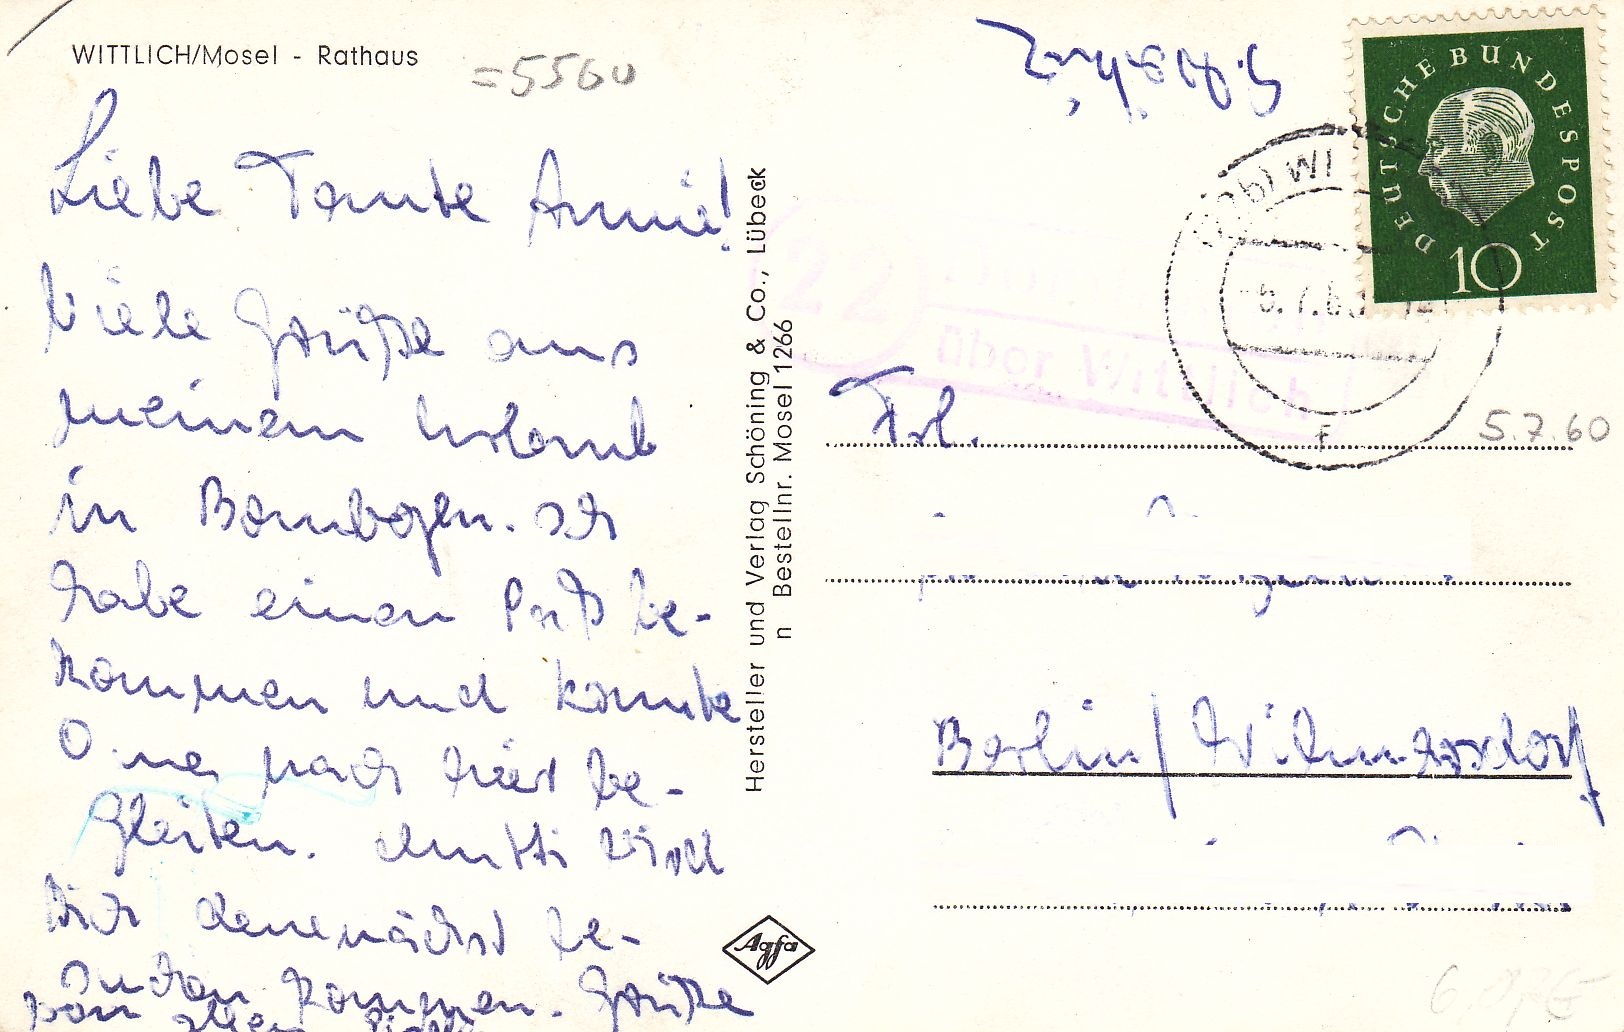 WITTLICH/Mosel - Rathaus
=5560
Liebe Tante Annie!
Viele Grüße aus
meinem Urlaub
in Bombogen. Ich
habe einen Paß be-
kommen und konnte
Oma nach hier be-
gleiten. Mutti wird
Dich demnächst be-
suchen kommen. Grüße
von allen
Hersteller und Verlag Schöning & Co., Lübeck
n Bestellnr. Mosel 1266
Agfa
DEUTSCHE BUNDESPOST
10
WI
5.7.60
F
22
über Wittlich
Frl.
5.7.60
Berlin/Wilmersdorf